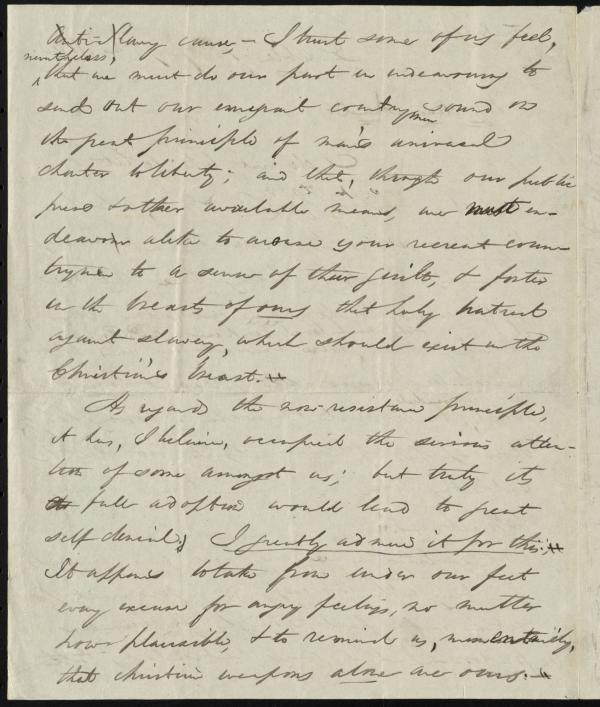 Anti-Slavery cause, – I trust some of us feel,
nevertheless,
that we must do our part in endeavouring to
send out our emigrant countrymen sound on
the great principle of man's universal
charter to liberty; and that, through our public
press & other available means, we must en-
deavour alike to arouse your recreant coun-
trymen to a sense of their guilt, & foster
in the breasts of ours that holy hatred
against slavery, which should exist in the
Christian's breast. –
As regards the non-resistance principle,
it has, I believe, occupied the serious atten-
tion of some amongst us; but truly its
full adoption would lead to great
self denial; I greatly admire it for this. –
It appears to take from under our feet
every excuse for angry feelings, no matter
how plausible, & to remind us, momentarily,
that christian weapons alone are ours. –